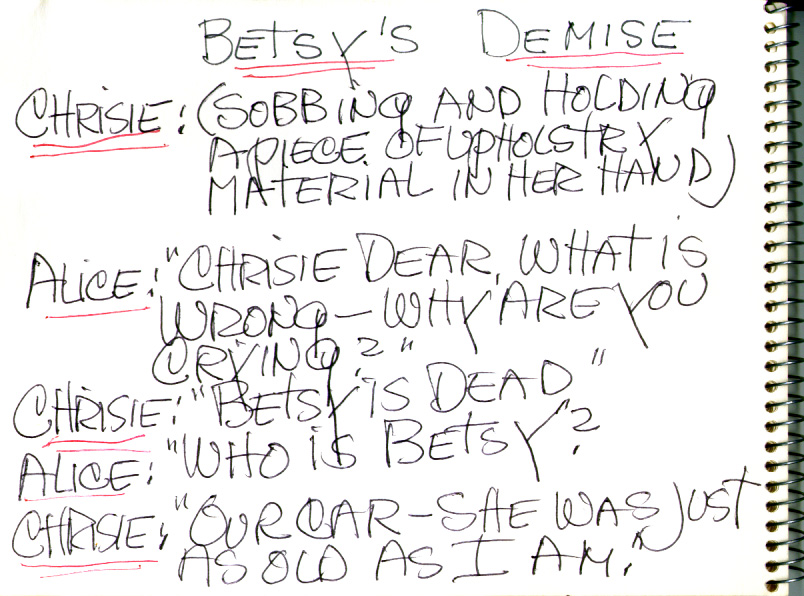 BETSY'S DEMISE
CHRISIE: (SOBBING AND HOLDING
A PIECE OF UPHOLSTRY
MATERIAL IN HER HAND)
ALICE: "CHRISIE DEAR, WHAT IS
WRONG – WHY ARE YOU
CRYING?"
CHRISIE: "BETSY IS DEAD"
ALICE: "WHO IS BETSY"?
CHRISIE: "OUR CAR – SHE WAS JUST
AS OLD AS I AM."